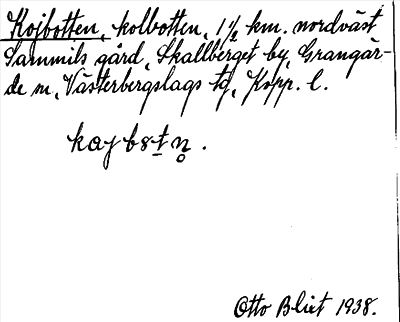 Kojbotten, kolbotten, 1½ km. nordväst
Sammils gård, Skallberget by, Grangär-
de sn, Västerbergslags tg, Kopp. l.
Otto Blixt 1938.